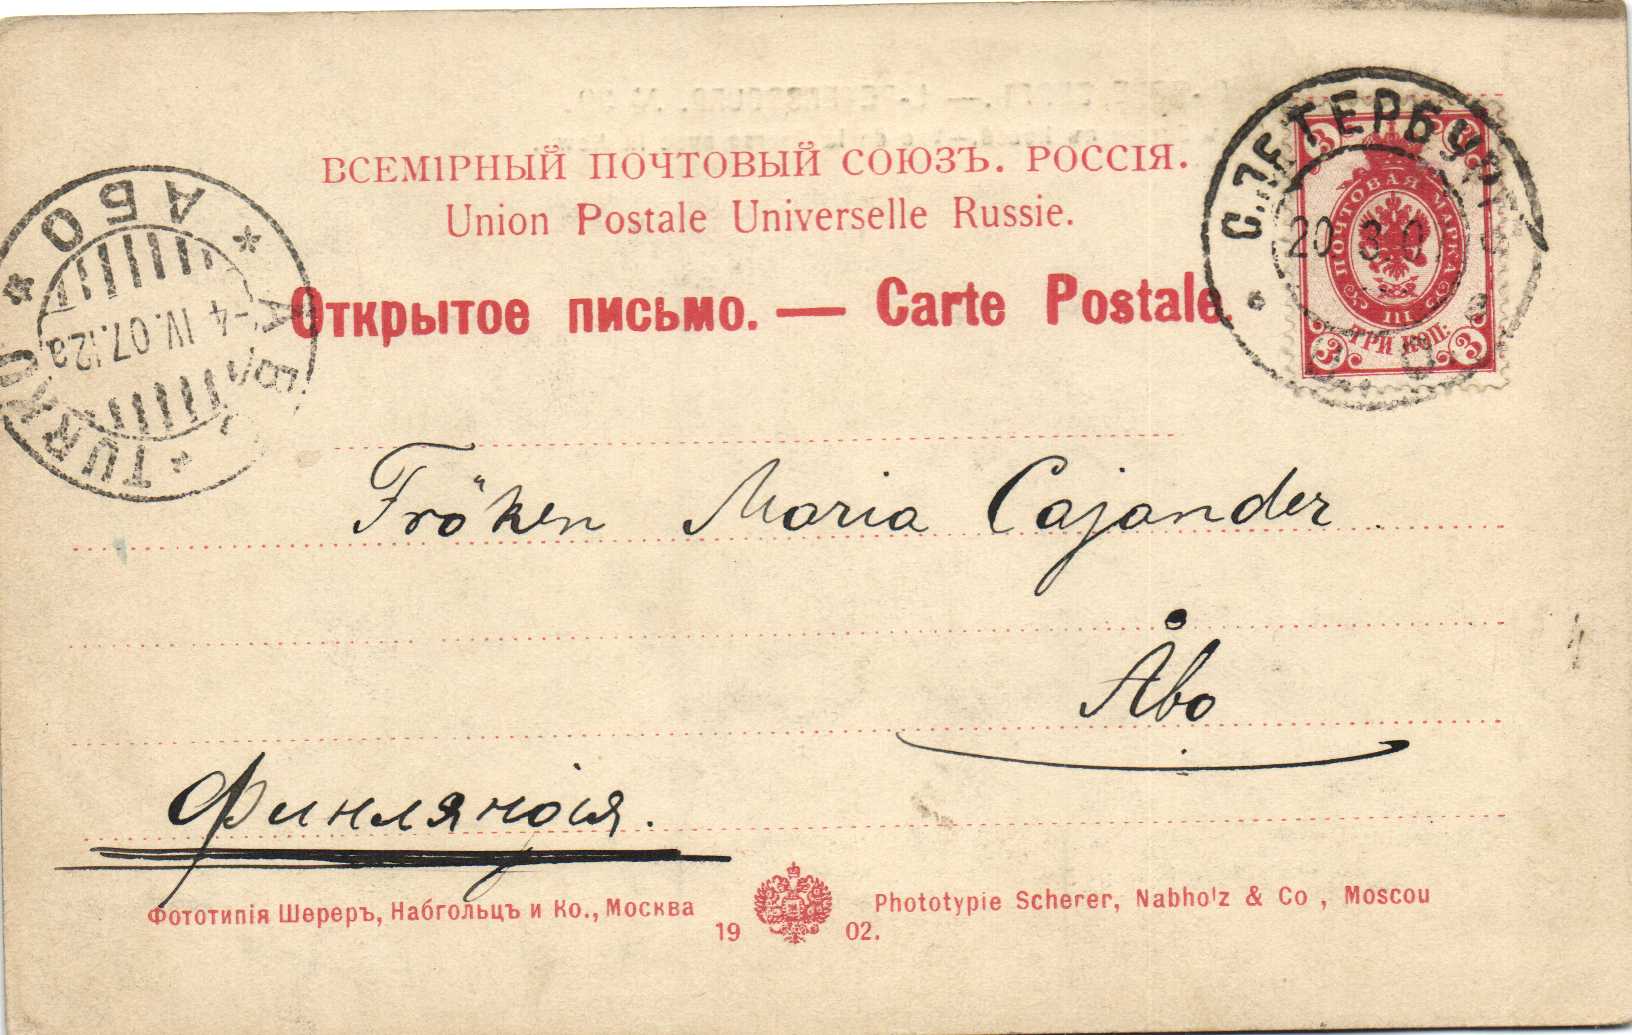 ВСЕМІРНЫЙ ПОЧТОВЫЙ СОЮЗЪ. РОССІЯ.
Union Postale Universelle Russie.
Открытое письмо. — Carte Postale.
С.ПЕТЕРБУРГ
20 3 0
ПОЧТОВАЯ МАРКА
III
ТРИ КОП:
3 3 3 3
АБО
ÅBO
TURKU
-4 IV.07.12a
Fröken Maria Cajander.
Åbo
Финляндія.
Фототипія Шереръ, Набгольцъ и Ко., Москва
1902.
Phototypie Scherer, Nabholz & Co, Moscou